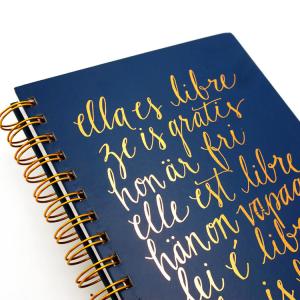 ella es libre
ze is gratis
hon är fri
elle est libre
hän on vapaa
lei è libe
is